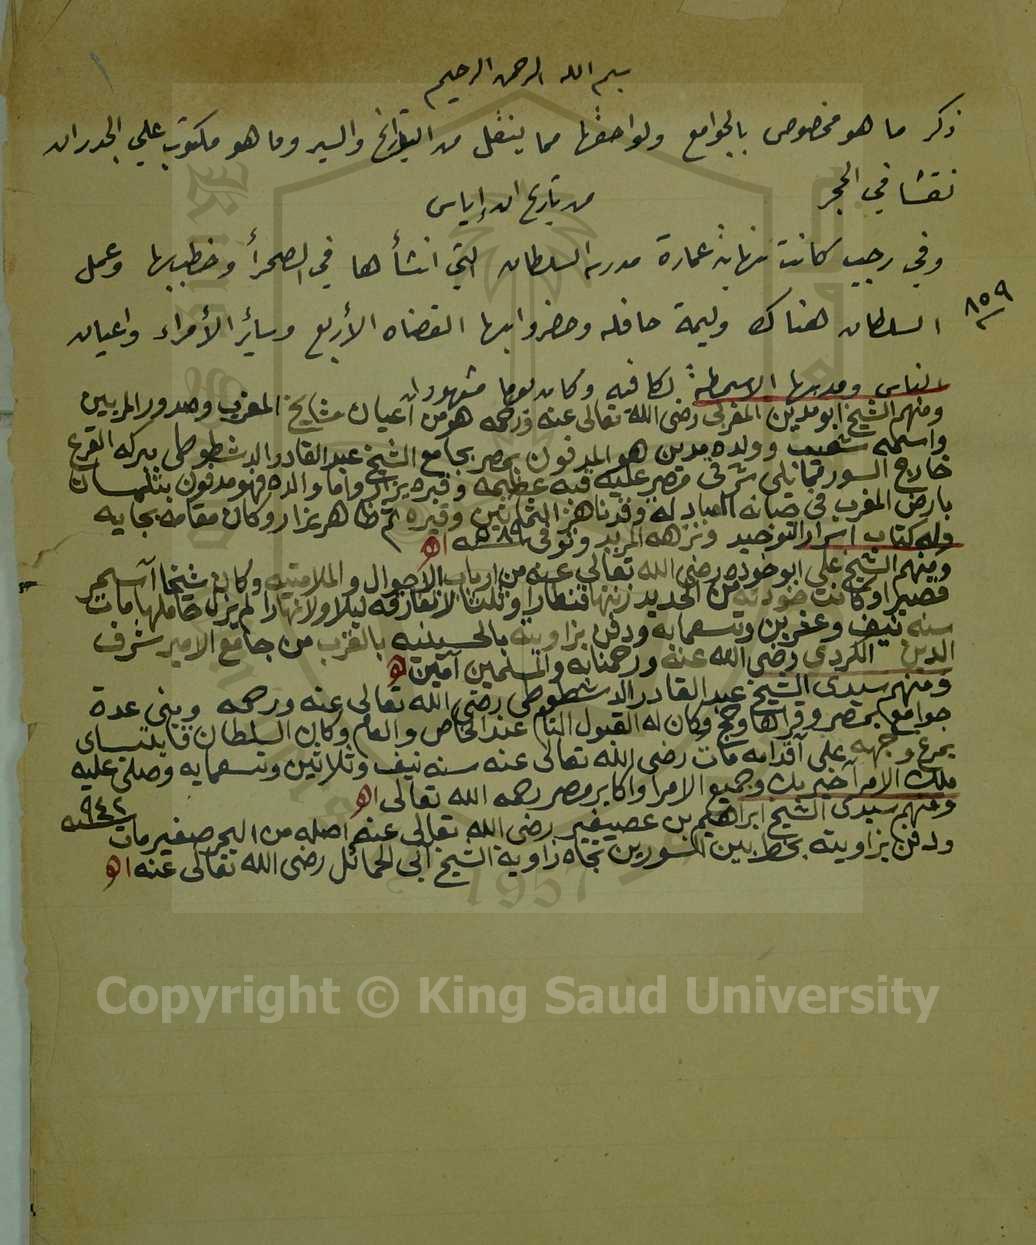 بسم الله الرحمن الرحيم
ذكر ما هو مخصوص بالجوامع ولواحقها مما ينقل من التواريخ والسير وما هو مكتوب علي الجدران
نقشا في الحجر
من تاريخ ابن إياس
وفي رجب كانت نهاية عمارة مدرسة السلطان التي انشأها في الصحرأ وخطب بها وعمل
٨٥٩
السلطان هناك وليمة حافله وحضروا بها القضاه الأربع وسائر الأمراء واعيان
الناس ومد بها الاسمطة لكافه وكان يوما مشهودا
ومنهم الشيخ ابو مدين المغربى رضى الله تعالى عنه ورحمه هو من اعيان مشايخ المغرب وصدور المربين
واسمه شعيب وولده مدين هو المدفون بمصر بجامع الشيخ عبد القادر الدشطوطى ببركه القرع
خارج السور مما يلى شرقى مصر عليه قبه عظيمه وقبره يزار واما والده فهو مدفون بتلمسان
بارض المغرب فى جبانه العباد له وقد ناهز الثمانين وقبره ثم ظاهر يزار وكان مقامه بجايه
وله كتاب اسرار التوحيد ونزهه المريد وتوفى سنه اه
ومنهم الشيخ على ابو خوده رضى الله تعالى عنه من ارباب الاحوال والملامتيه وكان شيخا اسمر
قصيرا وكانت خودته من الحديد زنتها قنطارا وثلث لا تفارقه ليلا ولا نهارا لم يزل حاملها مات
سنه نيف وعشرين وتسعمايه ودفن بزاويته بالحسينيه بالقرب من جامع الامير شرف
الدين الكردى رضى الله عنه ورحمنا به والمسلمين آمين اه
ومنهم سيدى الشيخ عبد القادر الدشطوطى رضى الله تعالى عنه ورحمه وبنى عدة
جوامع بمصر وقراها وحج وكان له القبول التام عند الخاص والعام وكان السلطان قايتباى
يمرغ وجهه على أقدامه مات رضى الله تعالى عنه سنه نيف وثلاثين وتسعمايه وصلى عليه
ملك الامرأ خير بك وجميع الامرا واكابر مصر رحمه الله تعالى اه
ومنهم سيدى الشيخ ابراهيم بن عصيفير رضى الله تعالى عنه اصله من البحر صغير مات سنه ٩٤٢
ودفن بزاويته بخط بين السورين تجاه زاوية الشيخ ابى الحمائل رضى الله تعالى عنه اه
1957
Copyright © King Saud University